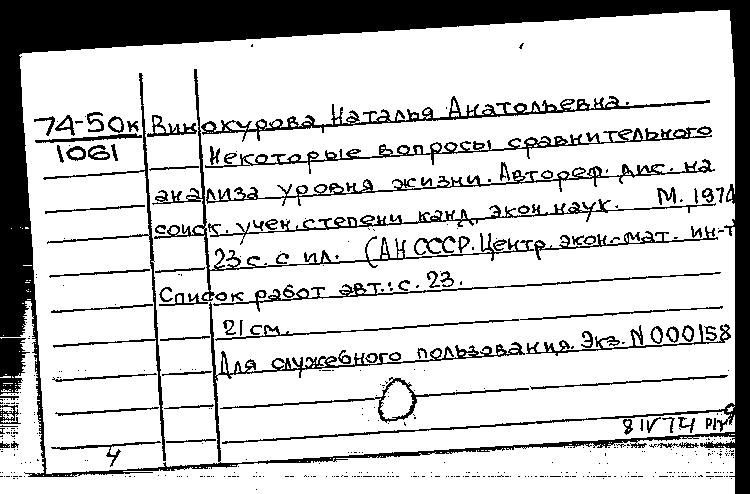 74-50к Винокурова, Наталья Анатольевна.
1061 Некоторые вопросы сравнительного
анализа уровня жизни. Автореф. дис. на
соиск. учен. степени канд. экон. наук. М., 1974
23 с. с ил. (АН СССР. Центр. экон.-мат. ин-т
Список работ авт.: с. 23.
21 см.
Для служебного пользования. Экз. N 000158
8 IV 74
4